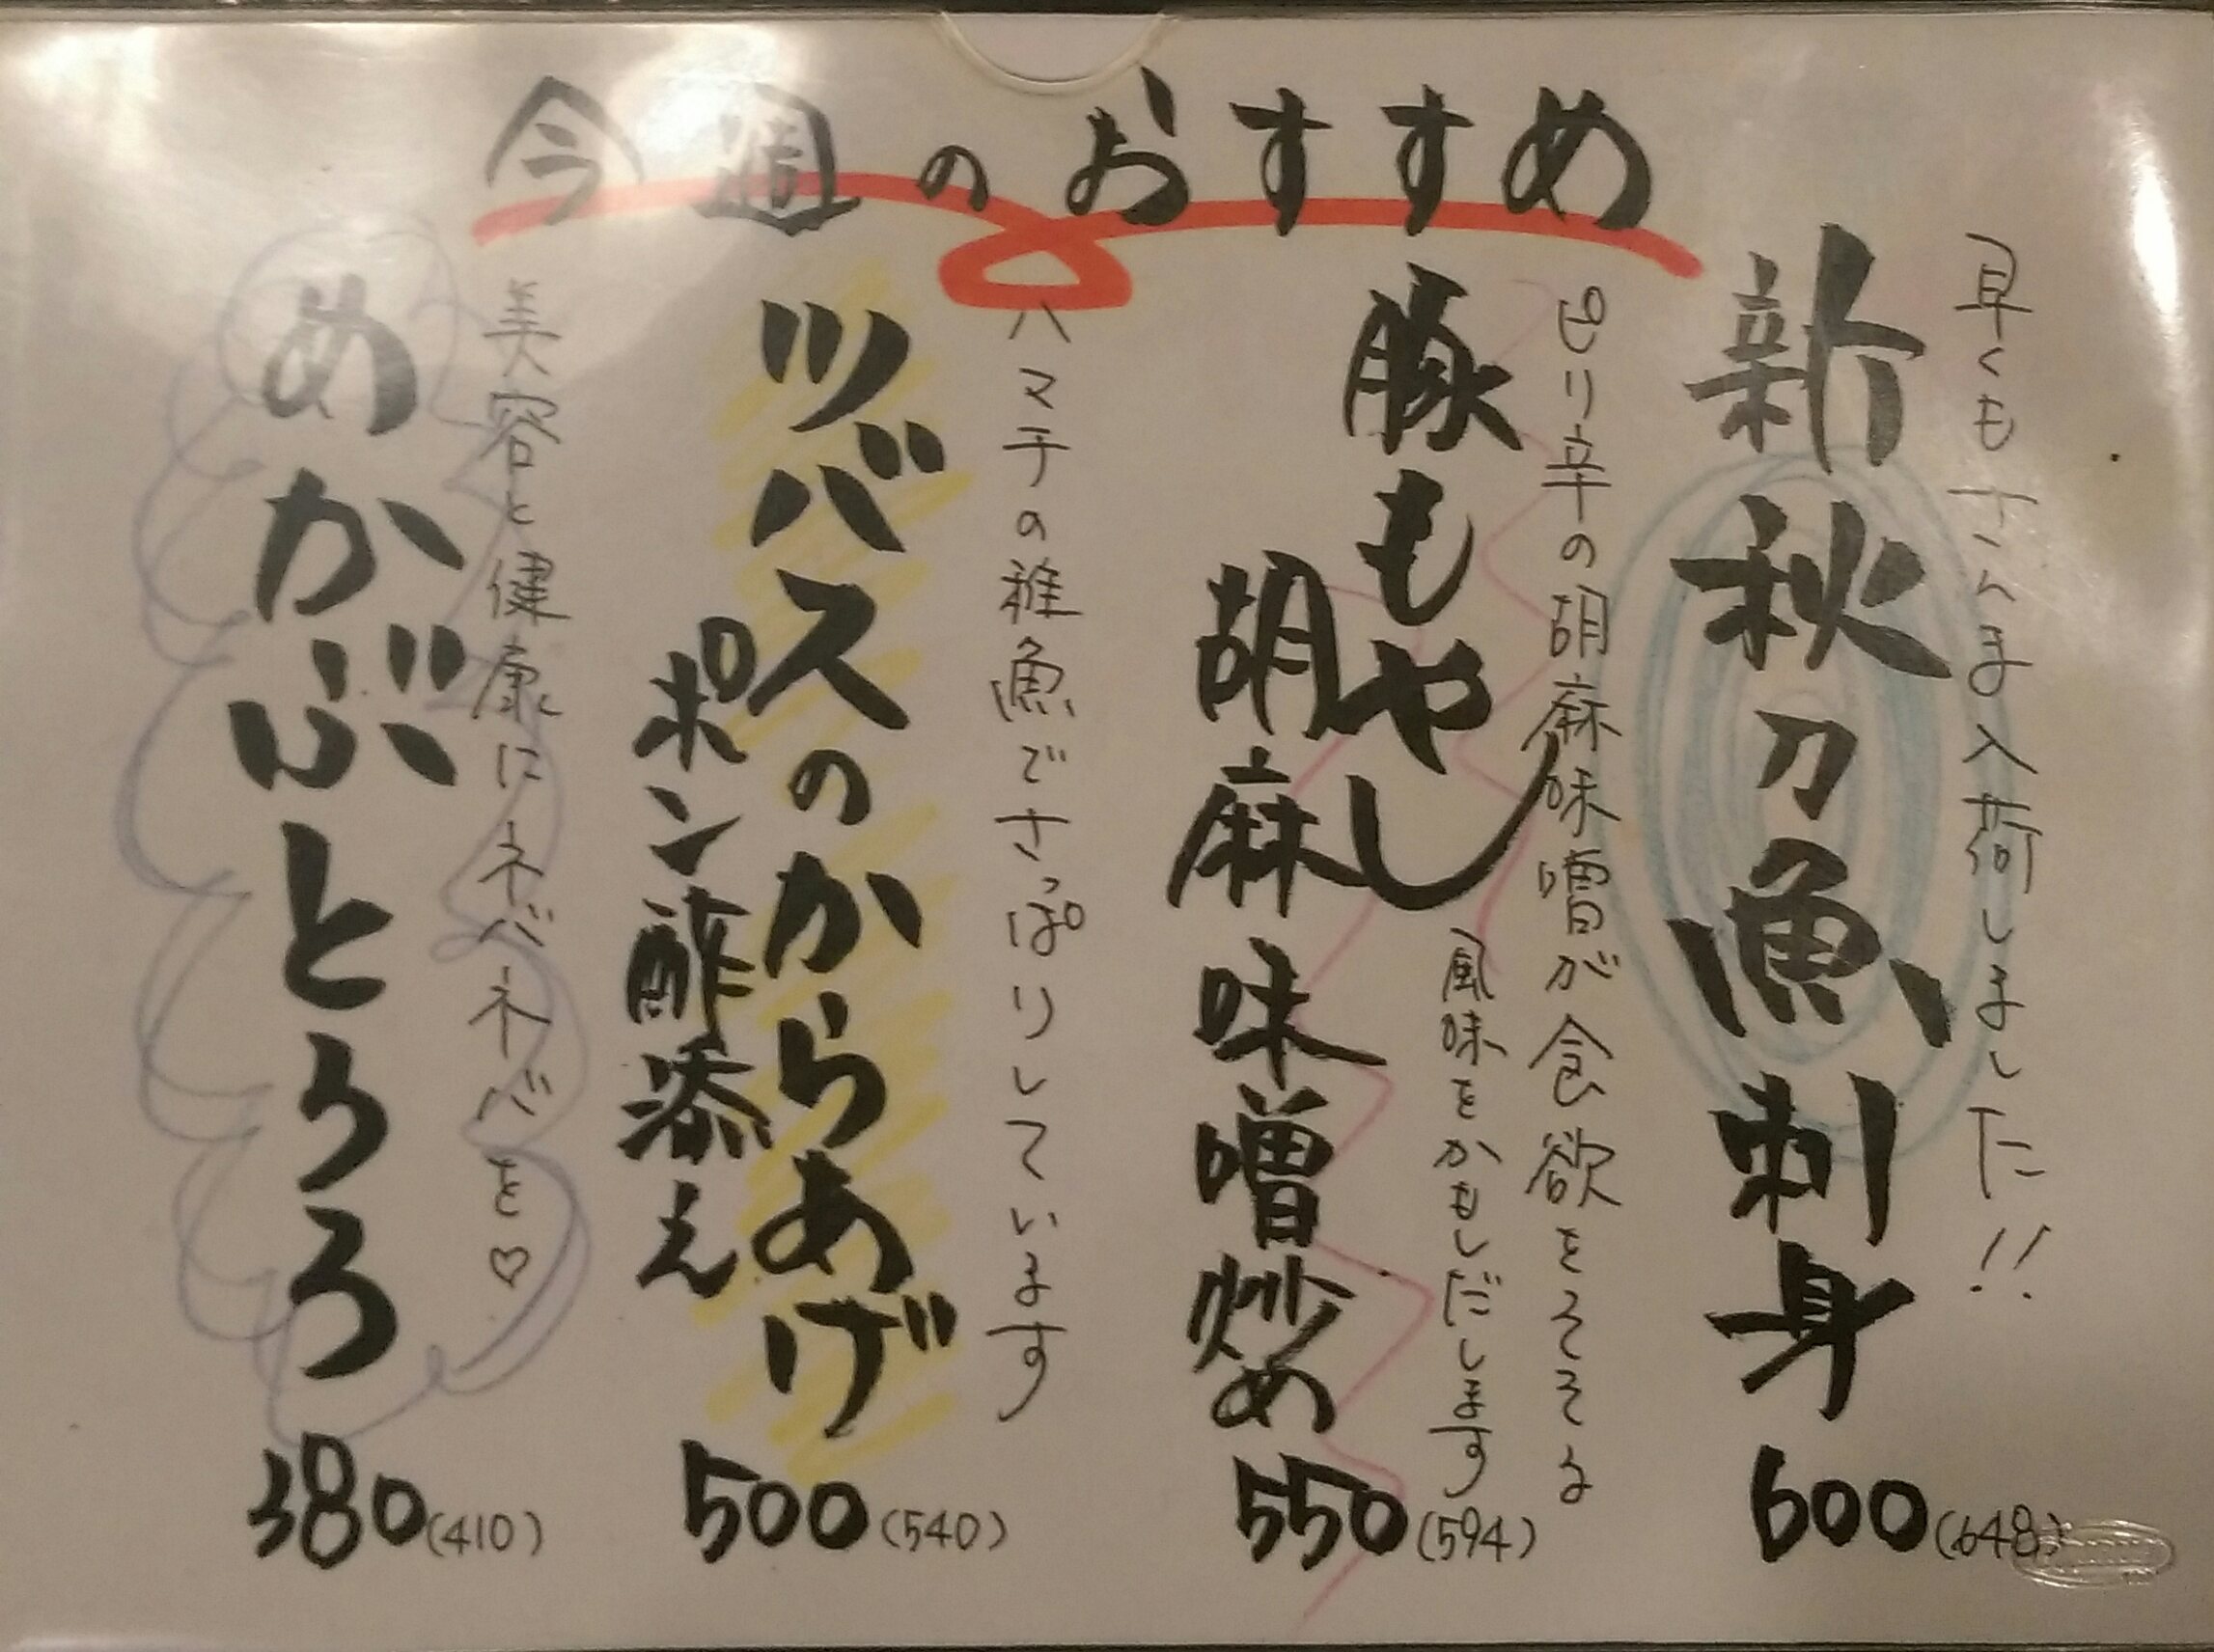 今週のおすすめ
早くもさんま入荷しました!!
新秋刀魚刺身
600(648)
ピリ辛の胡麻味噌が食欲をそそる
風味をかもしだします
豚もやし
胡麻味噌炒め
550(594)
ハマチの稚魚でさっぱりしています
ツバスのからあげ
ポン酢添え
500(540)
美容と健康にネバネバを♡
めかぶとろろ
380(410)